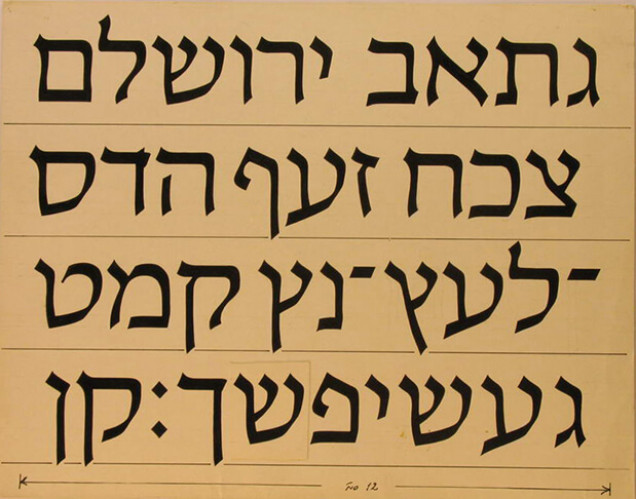 גתאב ירושלם
צכח זעף הדס
-לעץ-נץ קמט
געשיפשך:קן
12